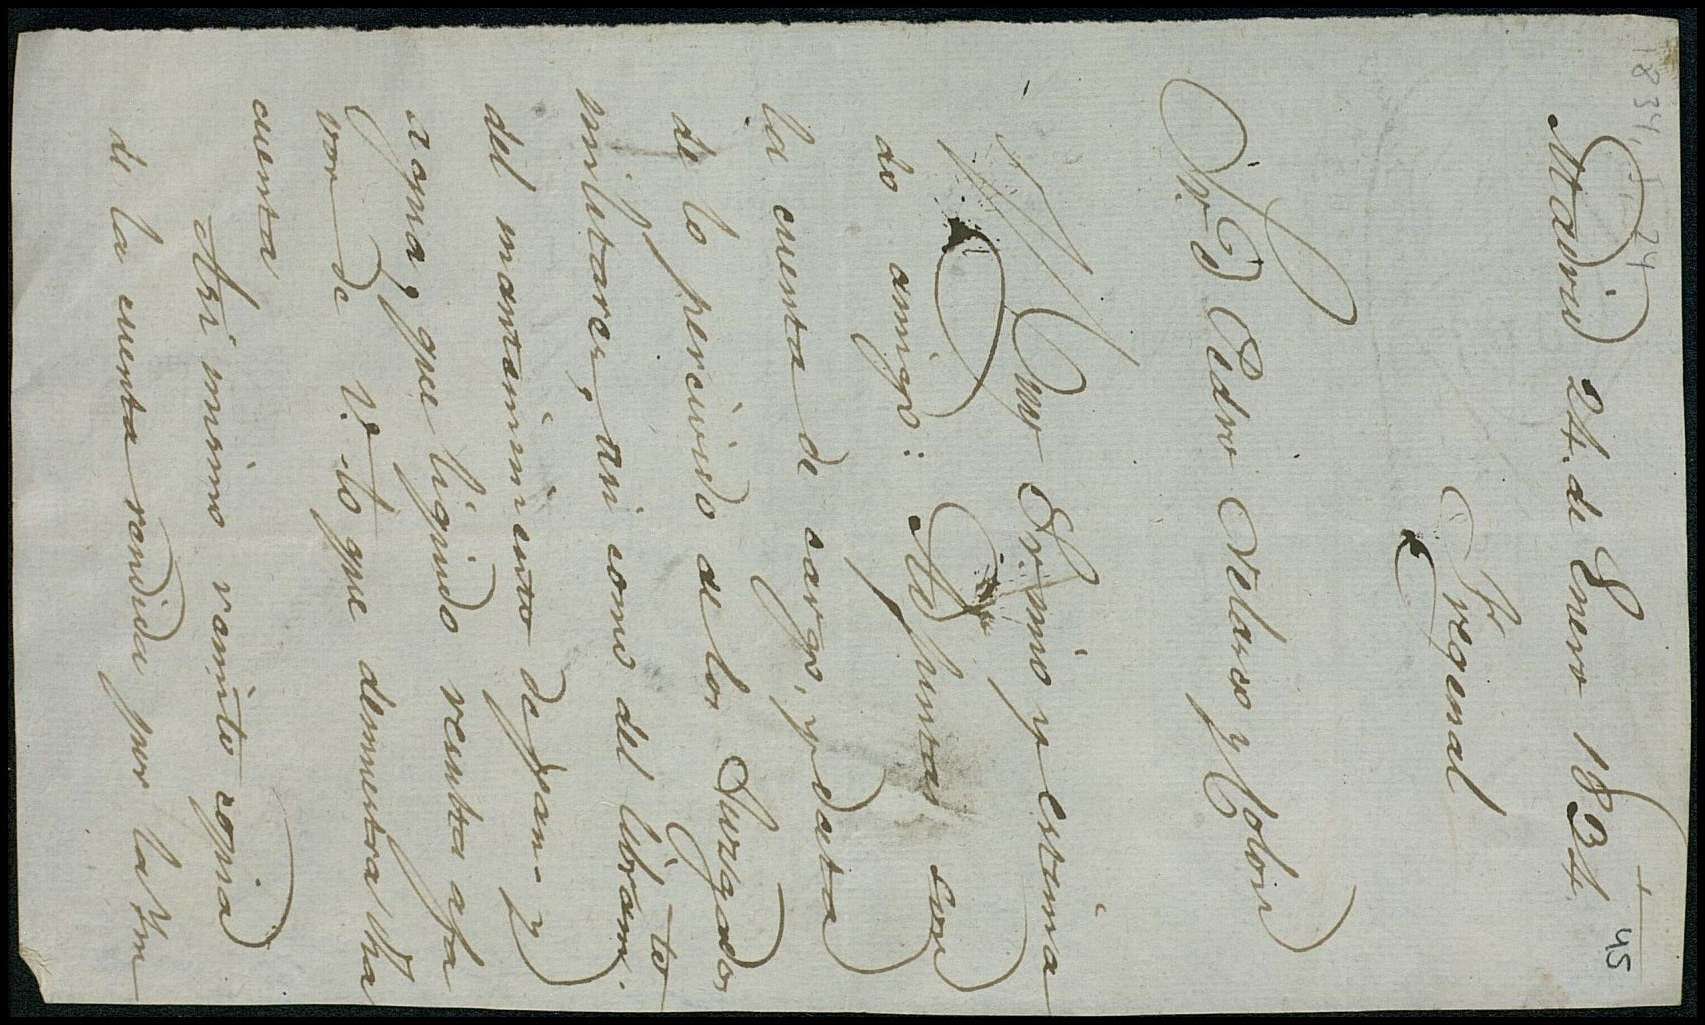 1834, I-24
+
45
Madrid 24. de Enero 1834.
Fregenal
Sr. D Pedro Velasco y Colon
Muy Sr. mio y estima
do amigo: Adjuntas son
la cuenta de cargo, y data
de lo percivido de los Juzgados
militares, asi como del libram.to
del mantenimiento de pan y
agua, que liquido resulta a fa
vor de V. lo que demuestra dha
cuenta
Asi mismo remito copia
de la cuenta rendida por la